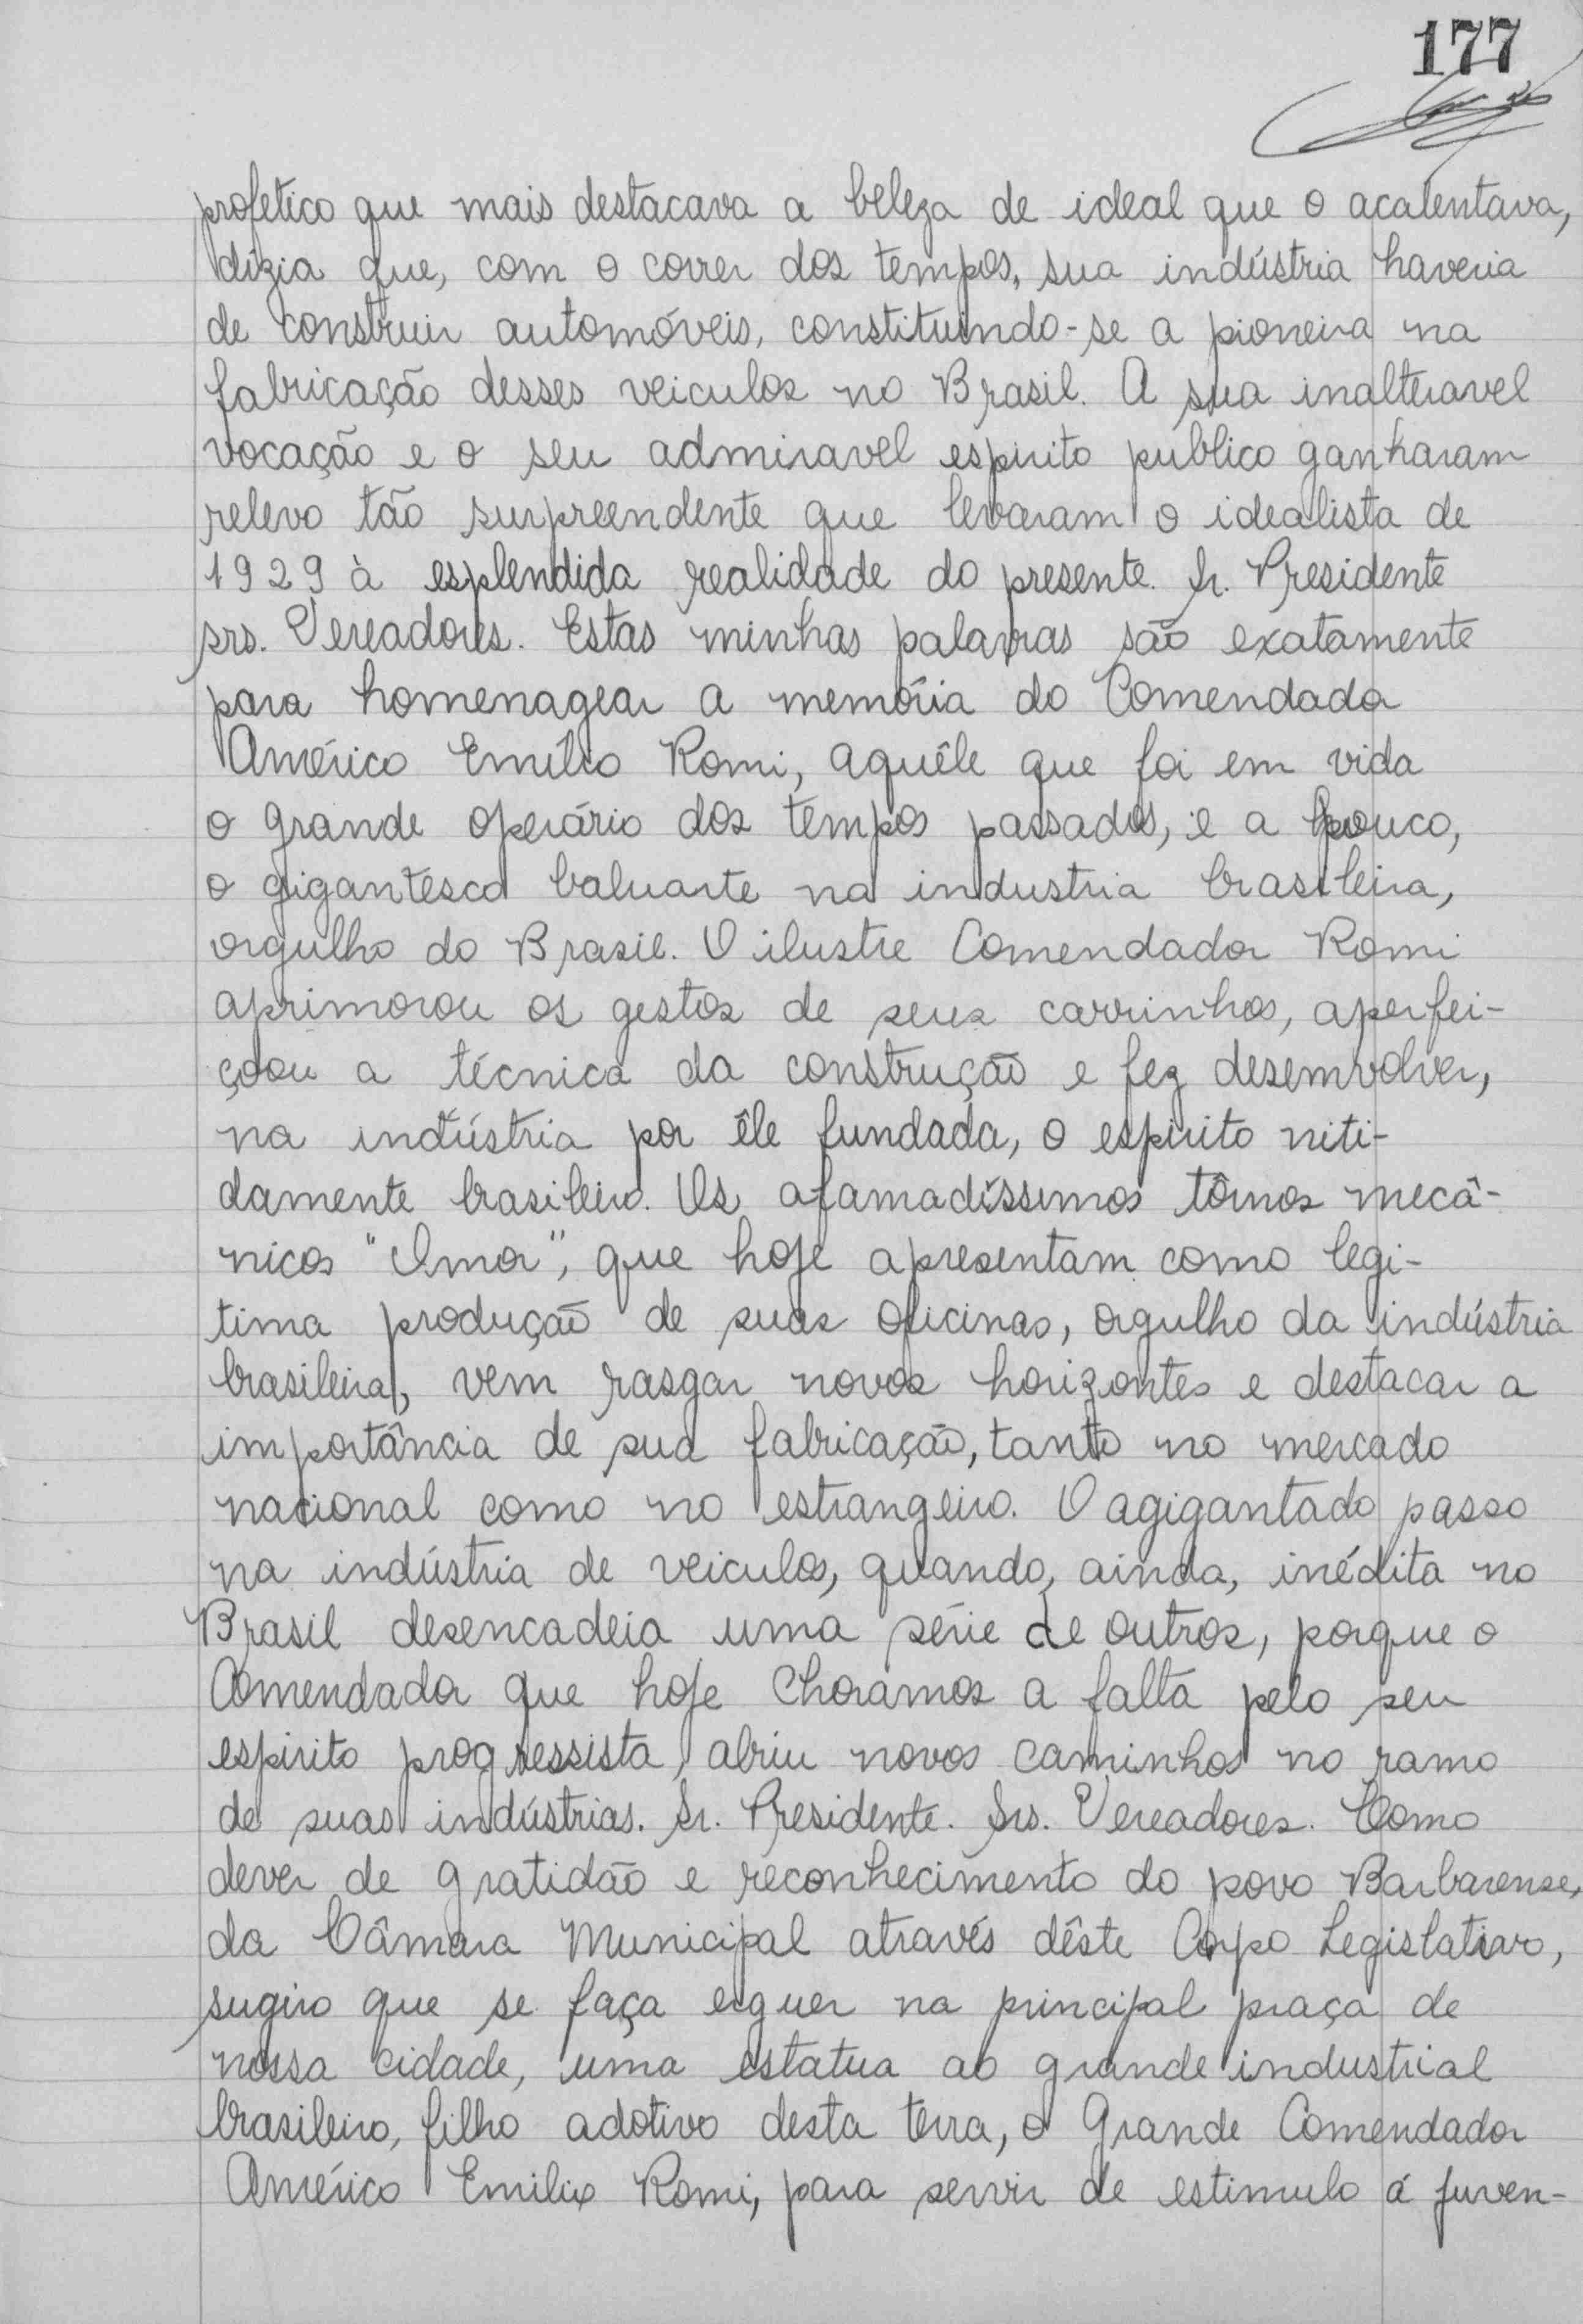 177
profetico que mais destacava a beleza de ideal que o acalentava,
dizia que, com o correr dos tempos, sua indústria haveria
de construir automóveis, constituindo-se a pioneira na
fabricação desses veiculos no Brasil. A sua inalteravel
vocação e o seu admiravel espirito publico ganharam
relevo tão surpreendente que levaram o idealista de
1929 à esplendida realidade do presente. Sr. Presidente
srs. Vereadores. Estas minhas palavras são exatamente
para homenagear a memória do Comendador
Américo Emílio Romi, aquêle que foi em vida
o grande operário dos tempos passados, e a pouco,
o gigantesco baluarte na industria brasileira,
orgulho do Brasil. O ilustre Comendador Romi
aprimorou os gestos de seus carrinhos, aperfei-
çoou a técnica da construção e fez desemvolver,
na indústria por êle fundada, o espirito niti-
damente brasileiro. Os afamadíssimos tôrnos mecâ-
nicos "Imor", que hoje apresentam como legi-
tima produção de suas oficinas, orgulho da indústria
brasileira, vem rasgar novos horizontes e destacar a
importância de sua fabricação, tanto no mercado
nacional como no estrangeiro. O agigantado passo
na indústria de veiculos, quando, ainda, inédita no
Brasil desencadeia uma série de outros, porque o
Comendador que hoje choramos a falta pelo seu
espirito progressista, abriu novos caminhos no ramo
de suas indústrias. Sr. Presidente. Srs. Vereadores. Como
dever de gratidão e reconhecimento do povo Barbarense,
da Câmara Municipal através dêste Corpo Legislativo,
sugiro que se faça erguer na principal praça de
nossa cidade, uma estatua ao grande industrial
brasileiro, filho adotivo desta terra, o Grande Comendador
Américo Emilio Romi, para servir de estimulo á juven-